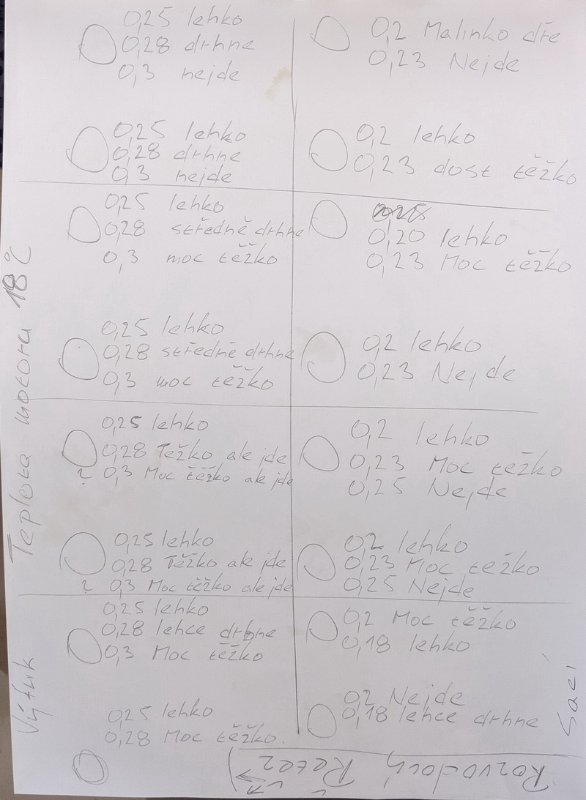 0,25 lehko
0,28 drhne
0,3 nejde
0,2 Malinko dře
0,23 Nejde
0,25 lehko
0,28 drhne
0,3 nejde
0,2 lehko
0,23 dost těžko
0,25 lehko
0,28 středně drhne
0,3 moc těžko
0,20 lehko
0,23 Moc těžko
0,25 lehko
0,28 středně drhne
0,3 moc těžko
0,2 lehko
0,23 Nejde
0,25 lehko
0,28 Těžko ale jde
? 0,3 Moc těžko ale jde
0,2 lehko
0,23 Moc těžko
0,25 Nejde
0,25 lehko
0,28 Těžko ale jde
? 0,3 Moc těžko ale jde
0,2 lehko
0,23 Moc těžko
0,25 Nejde
0,25 lehko
0,28 lehce drhne
0,3 Moc těžko
0,2 Moc těžko
0,18 lehko
0,25 lehko
0,28 Moc těžko.
0,2 Nejde
0,18 lehce drhne
Teplota motoru 18°C
Výfuk
Sací
Rozvodový Řetěz